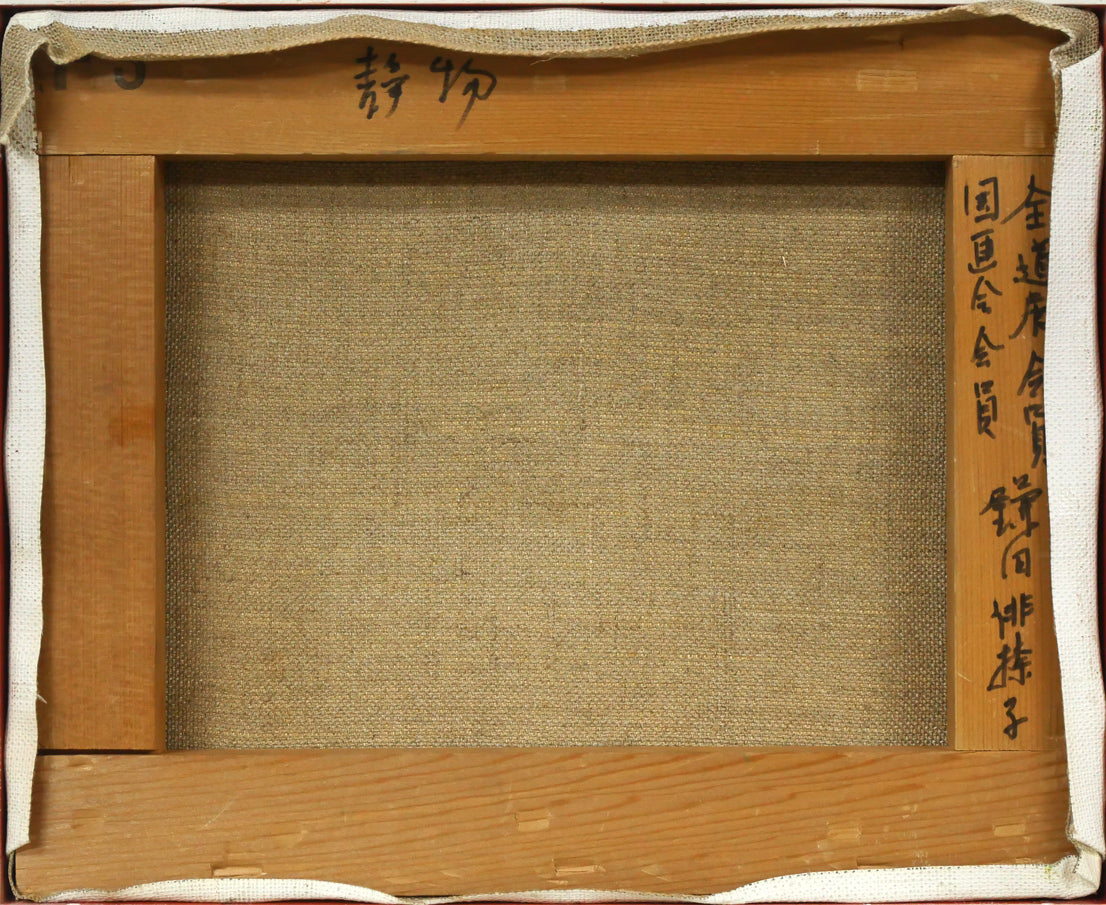 静物
全道展会員
国画会会員
鎌田俳捺子